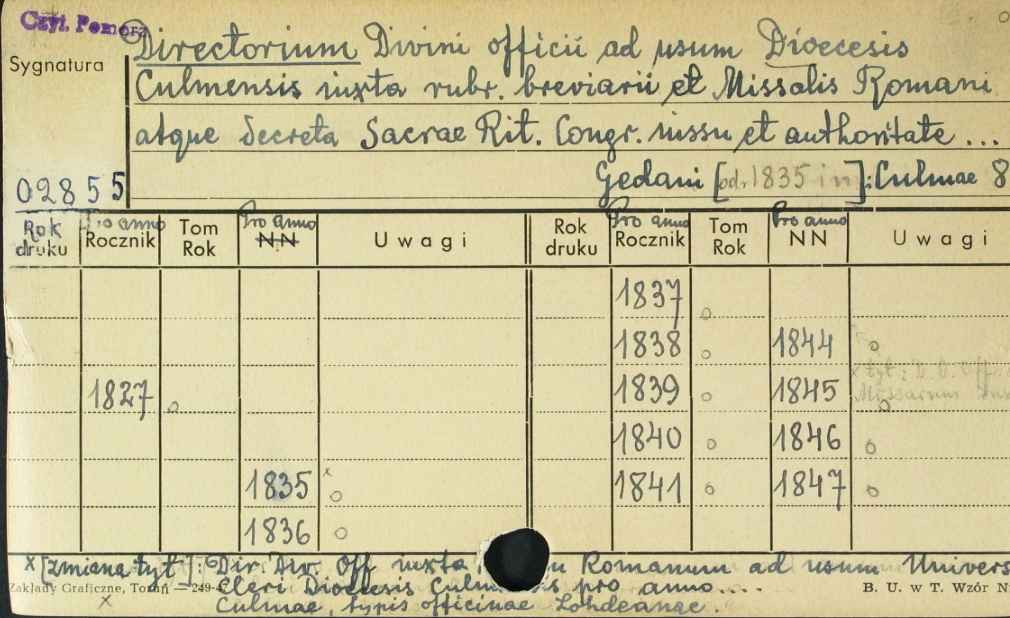 Czyt. Pomorz
Directorium Divini officii ad usum Dioecesis
Sygnatura
Culmensis iuxta rubr. breviarii et Missalis Romani
atque decreta Sacrae Rit. Congr. iussu et authoritate ...
02855
Gedani [od. 1835 in]: Culmae 8
Rok druku
Pro anno Rocznik
Tom Rok
Pro anno NN
Uwagi
Rok druku
Pro anno Rocznik
Tom Rok
Pro anno NN
Uwagi
1837 o
1838 o 1844 o
x tyt: D. D. Off.
1827 o 1839 o 1845 o Missarum
1840 o 1846 o
1835 x o 1841 o 1847 o
1836 o
x [zmiana tyt]: Dir. Div. Off iuxta Romanum ad usum Univers
Zakłady Graficzne, Toruń — 249 Cleri Dioecesis Culm is pro anno.... B. U. w T. Wzór N
x Culmae, typis officinae Lohdeanae.